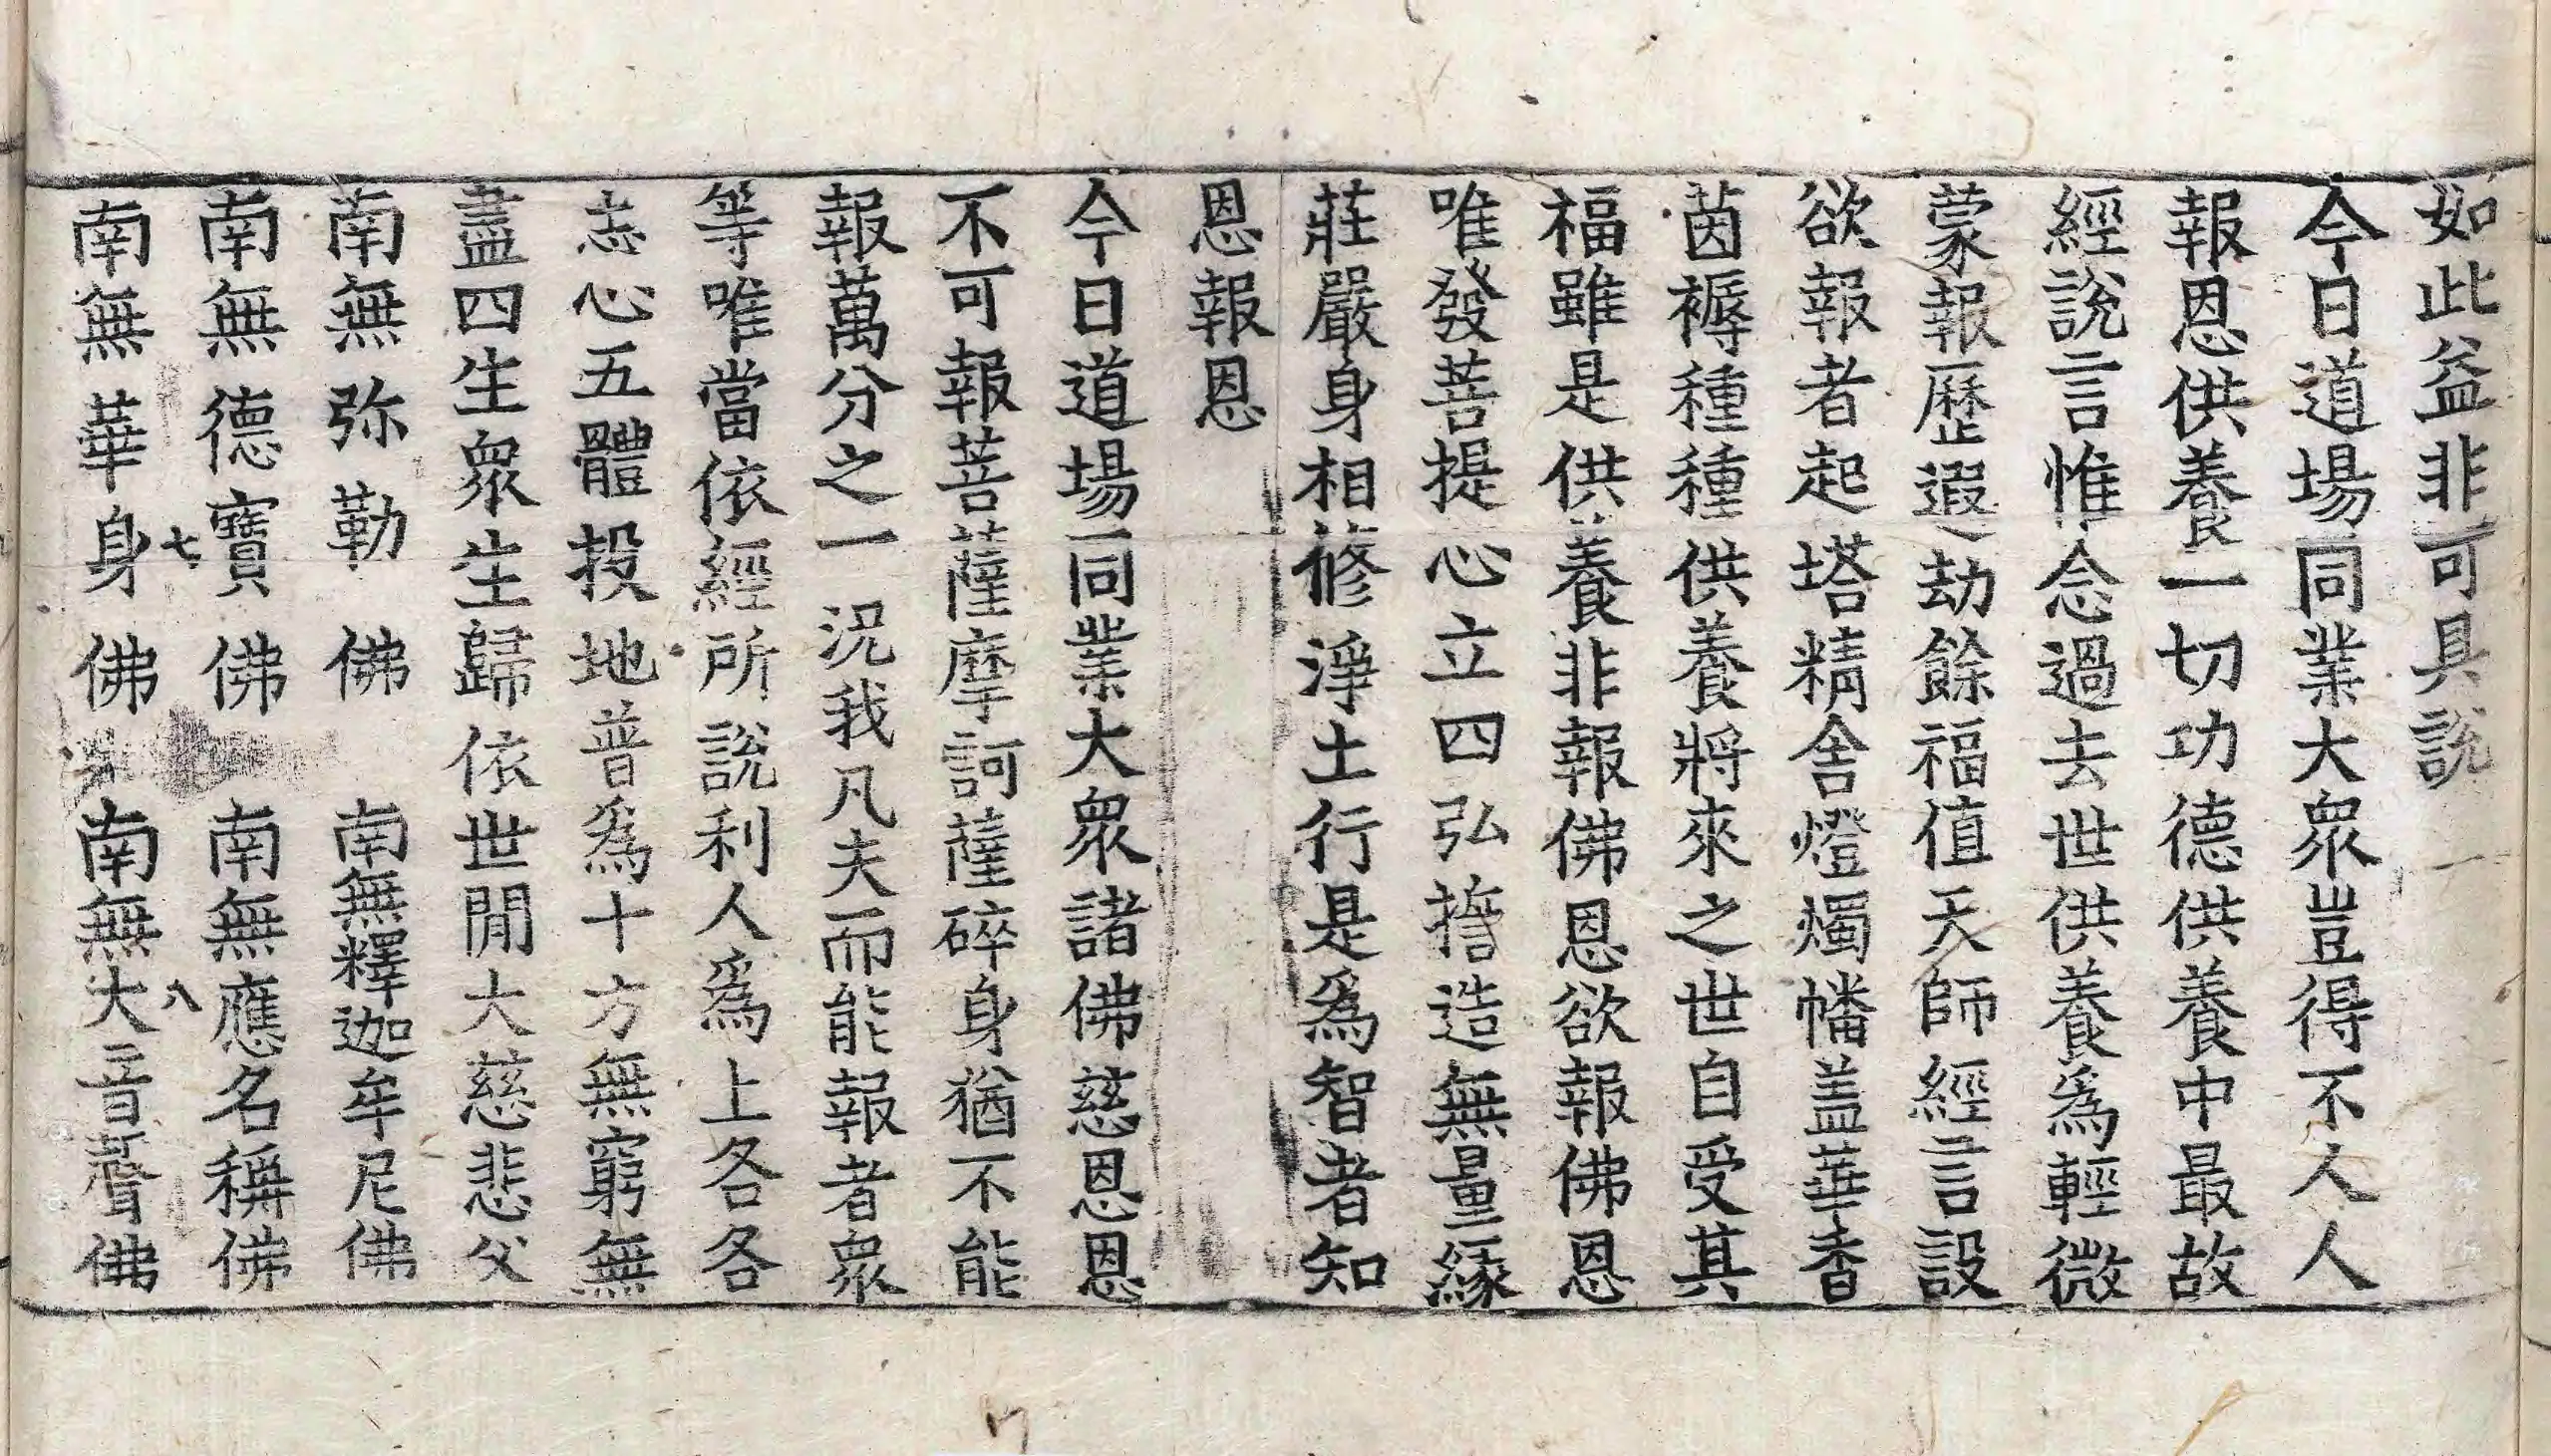 如此益非可具說
今日道場同業大眾豈得不人人
報恩供養一切功德供養中最故
經說言惟念過去世供養爲輕微
蒙報歷遐劫餘福值天師經言設
欲報者起塔精舍燈燭幡蓋華香
茵褥種種供養將來之世自受其
福雖是供養非報佛恩欲報佛恩
唯發菩提心立四弘誓造無量緣
莊嚴身相修淨土行是爲智者知
恩報恩
今日道場同業大眾諸佛慈恩恩
不可報菩薩摩訶薩碎身猶不能
報萬分之一況我凡夫而能報者眾
等唯當依經所說利人爲上各各
志心五體投地普爲十方無窮無
盡四生眾生歸依世間大慈悲父
南無弥勒佛 南無釋迦牟尼佛
南無德寶佛 南無應名稱佛
七 八
南無華身佛 南無大音聲佛